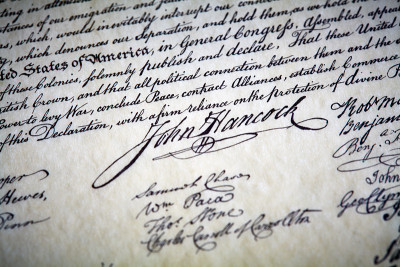 in attentions
stances of our emigration and
ions, which, would inevitably interrupt our connec
ty, which denounces our Separation, and hold them, as we hold the
ted States of America, in General Congress, Assembled, appea
of these Colonies, solemnly publish and declare, That these United
British Crown, and that all political connection between them and the
Power to levy War, conclude Peace, contract Alliances, establish Commerce
of this Declaration, with a firm reliance on the protection of divine P
John Hancock
Rob
Benjami
Benj.
John
Geo Clym
Hewes,
Penn
Samuel Chase
Wm Paca
Thos. Stone
Charles Carroll of Carrollton